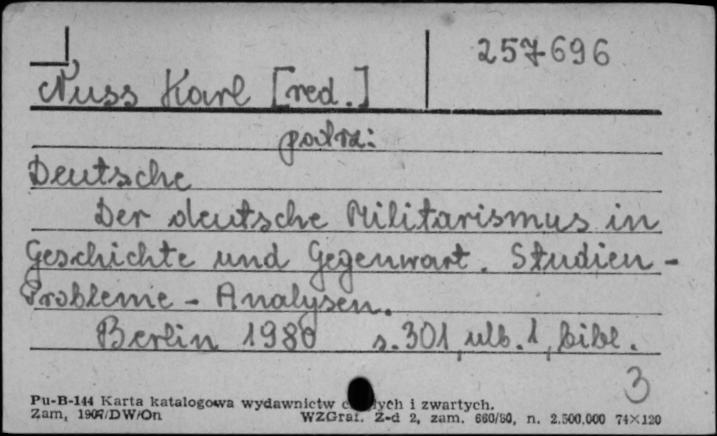 257696
Nuss Karl [red.]
patrz:
Deutsche
Der deutsche Militarismus in
Geschichte und Gegenwart. Studien -
Probleme - Analysen.
Berlin 1980 s. 301, ulb. 1, bibl.
3
Pu-B-144 Karta katalogowa wydawnictw i zwartych.
Zam, 1907/DW/On WZGraf. Z-d 2, zam. 660/80, n. 2.500.000 74×120